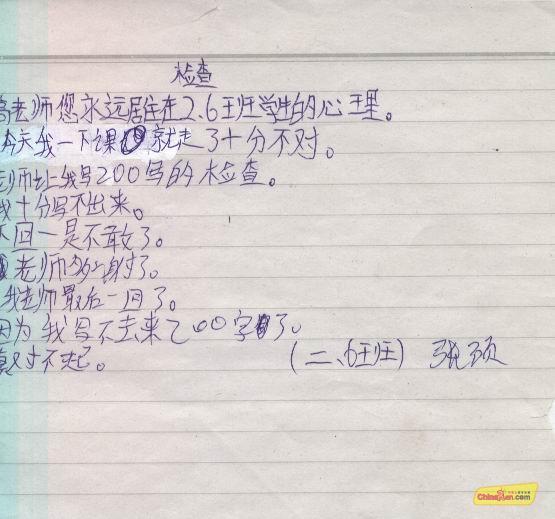 检查
高老师您永远居住在2.6班学生的心理。
今天我一下课就走了十分不对。
老师让我写200写的检查。
我十分写不出来。
下回一是不敢了。
老师多谢了。
我老师最后一回了。
因为我写不去来200字了。
真对不起。
(二、6班) 张颂
ChinaRen.com